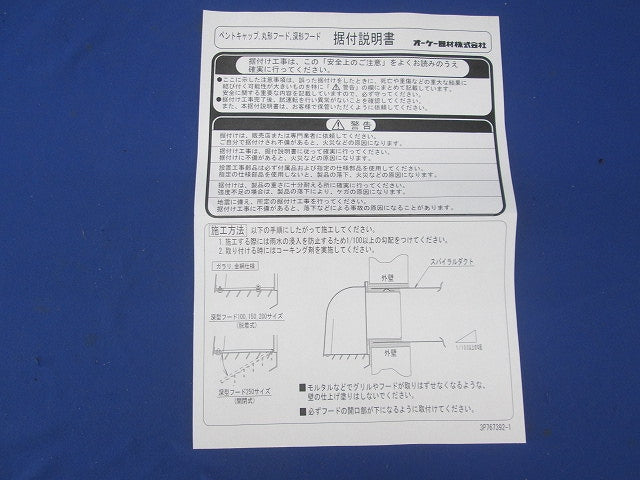 ベントキャップ、丸形フード、深形フード 据付説明書 オーケー器材株式会社
据付け工事は、この「安全上のご注意」をよくお読みのうえ
確実に行ってください。
●ここに示した注意事項は、誤った据付けをしたときに、死亡や重傷などの重大な結果に
結び付く可能性が大きいものを特に「⚠警告」の欄にまとめて記載しています。
安全に関する重要な内容を記載していますので、必ず守ってください。
●据付け工事完了後、試運転を行い異常がないことを確認してください。
また、本据付説明書は、お客様で保管いただくように依頼してください。
⚠ 警告
据付けは、販売店または専門業者に依頼してください。
ご自分で据付けされ不備があると、火災などの原因になります。
据付け工事は、据付説明書に従って確実に行ってください。
据付けに不備があると、落下、火災などの原因になります。
設置工事部品は必ず付属品および指定の仕様部品を使用してください。
指定の仕様部品を使用しないと、製品の落下、火災などの原因になります。
据付けは、製品の重さに十分耐える所に確実に行ってください。
強度不足の場合は、製品の落下により、ケガの原因になります。
地震に備え、所定の据付け工事を行ってください。
据付け工事に不備があると、落下などによる事故の原因になることがあります。
施工方法 以下の手順にしたがって施工してください。
1. 施工する際には雨水の浸入を防止するため1/100以上の勾配をつけてください。
2. 取り付ける時にはコーキング剤を実施してください。
ガラリ、金網仕様
外壁
スパイラルダクト
深型フード100,150,200サイズ
(脱着式)
外壁
1/100以上の勾配
深型フード250サイズ
(開閉式)
■ モルタルなどでグリルやフードが取りはずせなくなるような、
壁の仕上げ塗りはしないでください。
■ 必ずフードの開口部が下になるように取付けてください。
3P767392-1